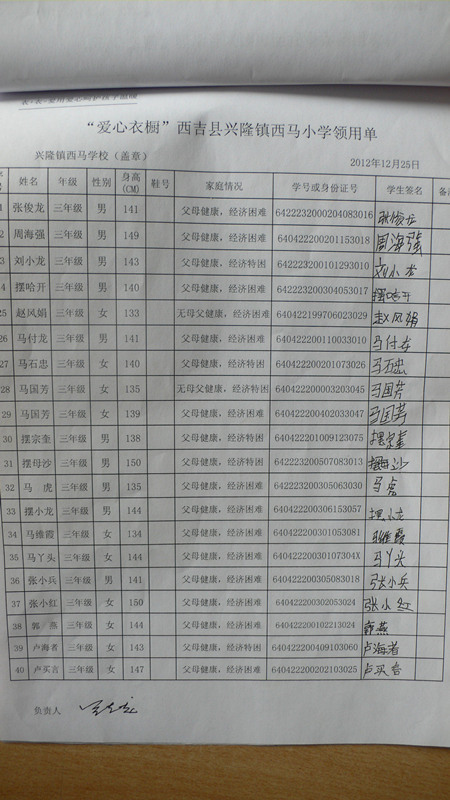 “爱心衣橱”西吉县兴隆镇西马小学领用单
兴隆镇西马学校（盖章） 2012年12月25日
姓名 年级 性别 身高(CM) 鞋号 家庭情况 学号或身份证号 学生签名 备
1 张俊龙 三年级 男 141 父母健康，经济困难 6422232000204083016 张俊龙
2 周海强 三年级 男 149 父母健康，经济困难 640422200201153018 周海强
3 刘小龙 三年级 男 143 父母健康，经济特困 642223200101293010 刘小龙
4 摆哈开 三年级 男 140 父母健康，经济困难 642223200304053017 摆哈开
25 赵风娟 三年级 女 133 无母父健康，经济困难 640422199706023029 赵风娟
26 马付龙 三年级 男 141 父母健康，经济困难 640422200110033010 马付龙
27 马石忠 三年级 女 140 父母健康，经济特困 640422200201073026 马石忠
28 马国芳 三年级 女 135 无母父健康，经济困难 640422200003203045 马国芳
29 马国芳 三年级 女 139 父母健康，经济困难 640422200402033047 马国芳
30 摆宗奎 三年级 男 138 父母健康，经济特困 642222201009123075 摆宗奎
31 摆母沙 三年级 男 150 父母健康，经济特困 642223200507083013 摆母沙
32 马 虎 三年级 男 135 父母健康，经济困难 642223200305063030 马虎
33 摆小龙 三年级 男 144 父母健康，经济困难 640422200306153057 摆小龙
34 马维霞 三年级 女 134 父母健康，经济困难 640422200301053081 马维霞
35 马丫头 三年级 女 144 父母健康，经济困难 64042220030107304X 马丫头
36 张小兵 三年级 男 141 父母健康，经济困难 640422200305083018 张小兵
37 张小红 三年级 女 150 父母健康，经济困难 640422200302053024 张小红
38 郭 燕 三年级 女 144 父母健康，经济困难 640422200102213024 郭燕
39 卢海者 三年级 女 143 父母健康，经济特困 640422200409103060 卢海者
40 卢买言 三年级 女 147 父母健康，经济困难 640422200202103025 卢买言
负责人